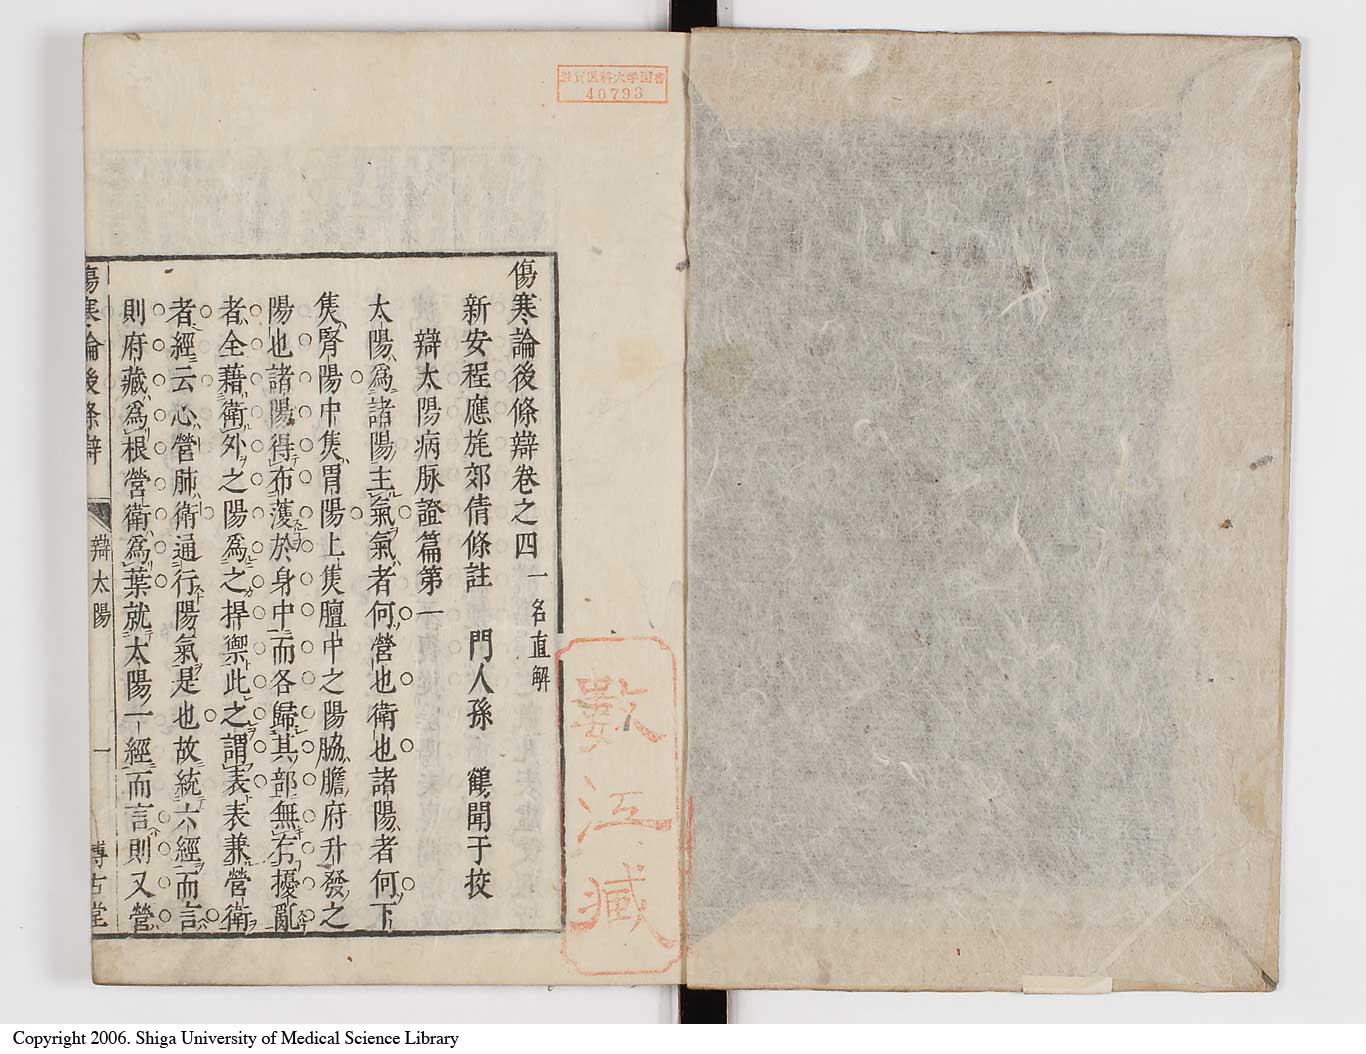 滋賀医科大学図書
40793
傷寒論後條辯卷之四 一名直解
新安程應旄郊倩條註 門人孫 鶴聞于挍
辯太陽病脉證篇第一
太陽爲諸陽主氣氣者何營也衛也諸陽者何下
焦腎陽中焦胃陽上焦膻中之陽脇膽府升發之
陽也諸陽得布濩於身中而各歸其部無有擾亂
者全藉衛外之陽爲之捍禦此之謂表表兼營衛
者經云心營肺衛通行陽氣是也故統六經而言
則府藏爲根營衛爲葉就太陽一經而言則又營
傷寒論後條辯
辯太陽
一
博古堂
江藏
Copyright 2006. Shiga University of Medical Science Library